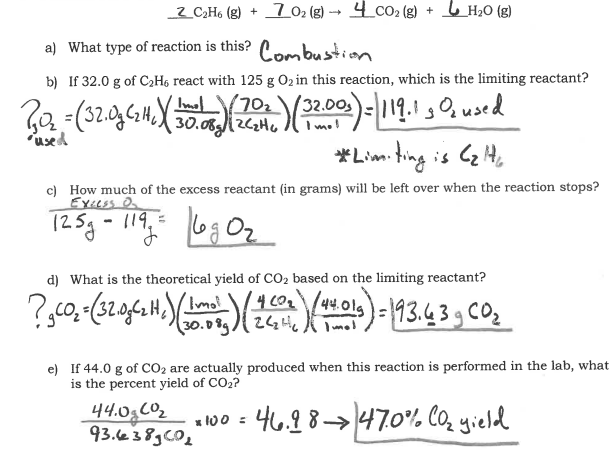 2 C₂H₆ (g) + 7 O₂ (g) → 4 CO₂ (g) + 6 H₂O (g)
a) What type of reaction is this? Combustion
b) If 32.0 g of C₂H₆ react with 125 g O₂ in this reaction, which is the limiting reactant?
?g O₂ used = (32.0g C₂H₆)(1mol / 30.08g)(7O₂ / 2C₂H₆)(32.00g / 1mol) = 119.1 g O₂ used
* Limiting is C₂H₆
c) How much of the excess reactant (in grams) will be left over when the reaction stops?
Excess O₂
125g - 119g = 6g O₂
d) What is the theoretical yield of CO₂ based on the limiting reactant?
?g CO₂ = (32.0g C₂H₆)(1mol / 30.08g)(4 CO₂ / 2C₂H₆)(44.01g / 1mol) = 93.63 g CO₂
e) If 44.0 g of CO₂ are actually produced when this reaction is performed in the lab, what
is the percent yield of CO₂?
44.0g CO₂ / 93.638g CO₂ x 100 = 46.98 → 47.0% CO₂ yield